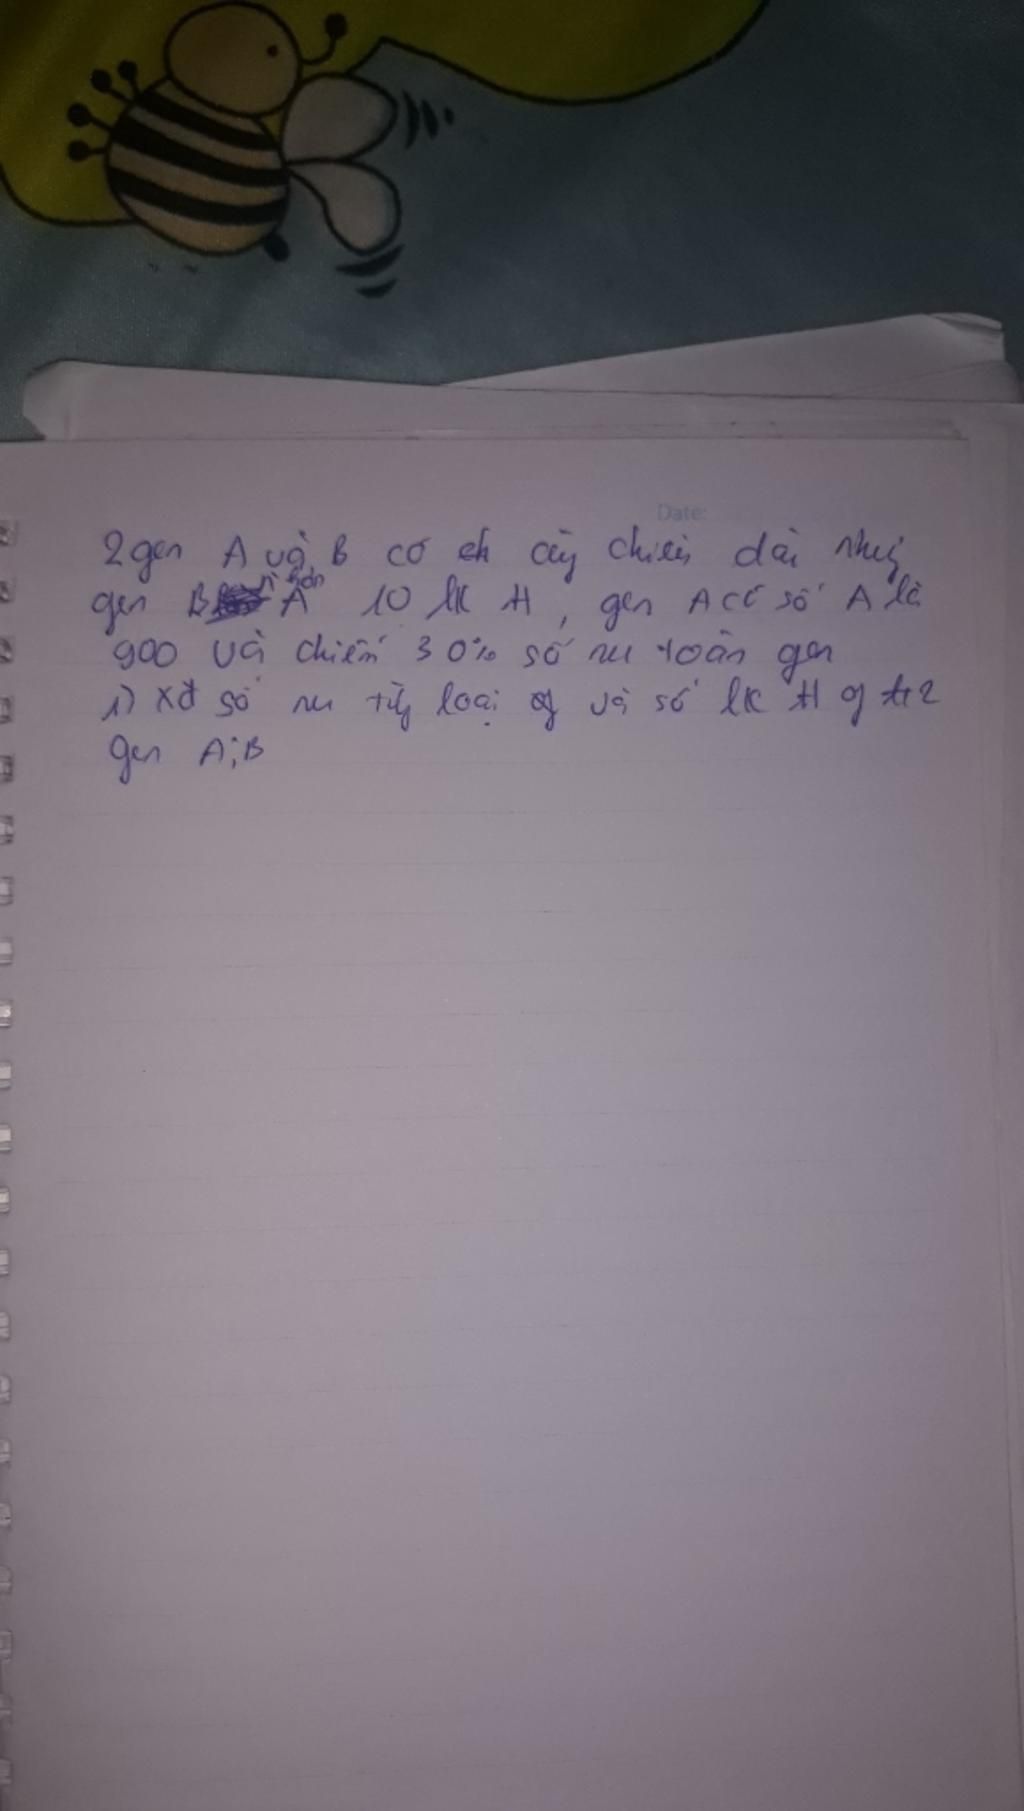 Date:
2 gen A và B có ch cùg chiều dài nhưg
gen B n' hơn A 10 lk H, gen A có số A là
900 và chiếm 30% số nu toàn gen
1) xđ số nu từg loại và số lk H of 2
gen A; B